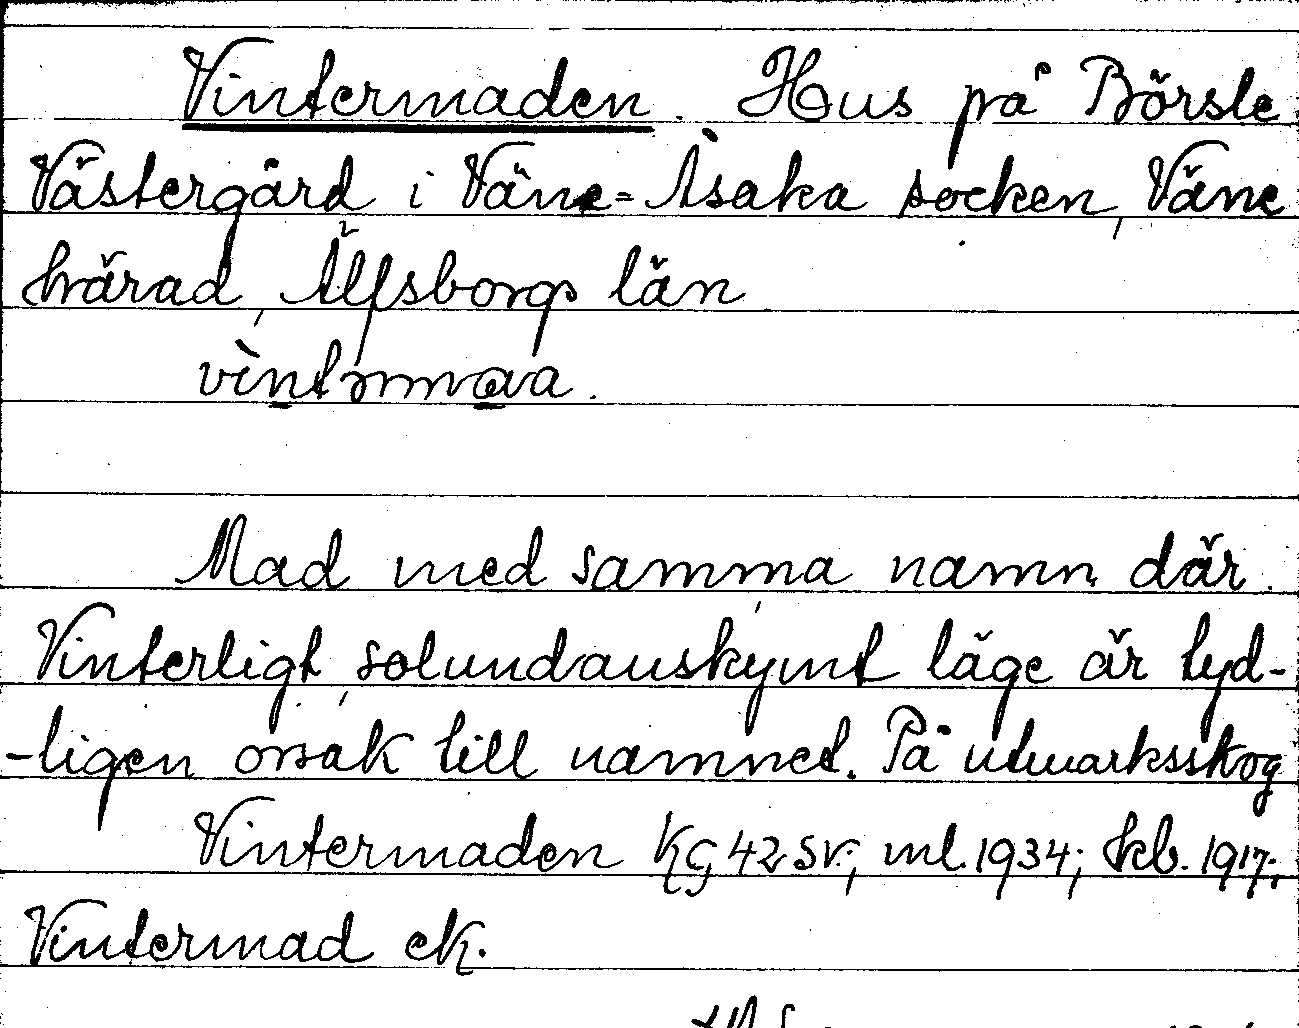 Vintermaden. Hus på Börsle
Västergård i Väne-Åsaka socken, Väne
härad, Älfsborgs län
Mad med samma namn, där.
Vinterligt, solundanskymt läge är tyd-
-ligen orsak till namnet. På utmarksskog
Vintermaden KG 42 SV; ml. 1934; kb. 1917;
Vintermad ek.